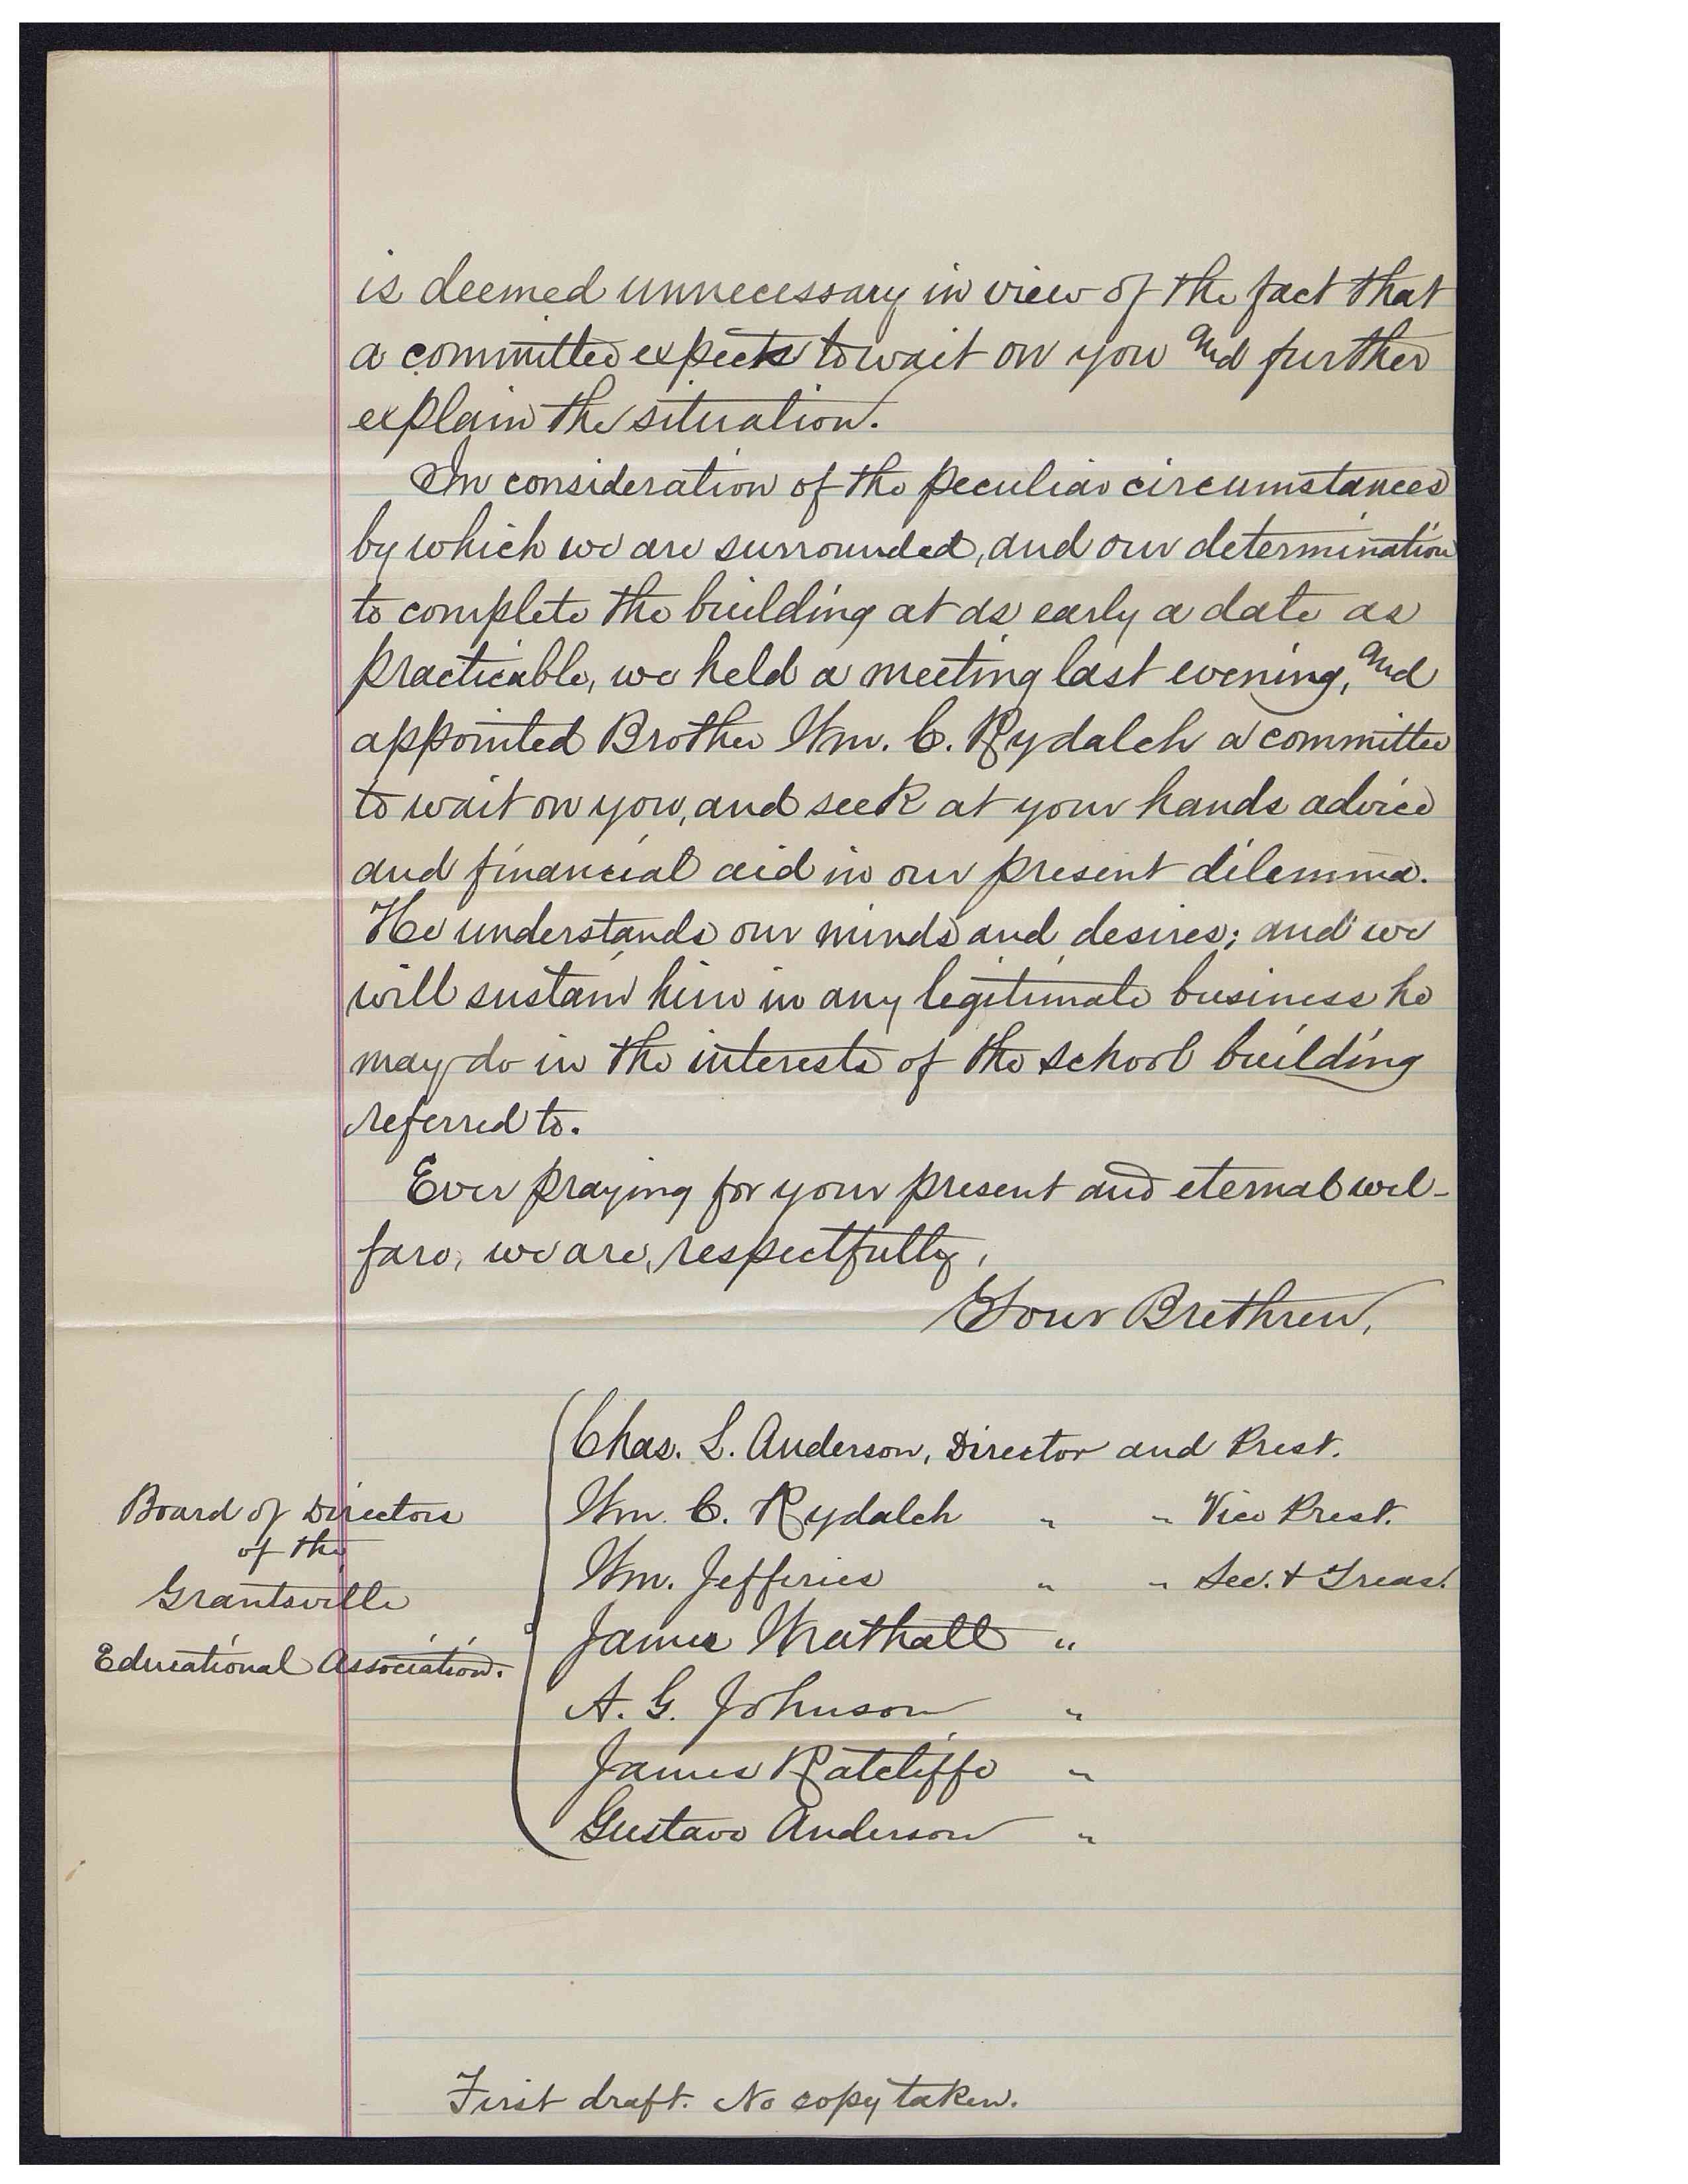 is deemed unnecessary in view of the fact that
a committee expects to wait on you and further
explain the situation.
In consideration of the peculiar circumstances
by which we are surrounded, and our determination
to complete the building at as early a date as
practicable, we held a meeting last evening, and
appointed Brother Wm. C. Rydalch a committee
to wait on you, and seek at your hands advice
and financial aid in our present dilemma.
He understands our minds and desires; and we
will sustain him in any legitimate business he
may do in the interests of the school building
referred to.
Ever praying for your present and eternal wel-
fare, we are, respectfully,
Your Brethren,
Board of Directors
of the
Grantsville
Educational Association.
Chas. L. Anderson, Director and Prest.
Wm. C. Rydalch " " Vice Prest.
Wm. Jefferies " " Sec. & Treas.
James Wrathall "
A. G. Johnson "
James Ratcliffe "
Gustave Anderson "
First draft. No copy taken.